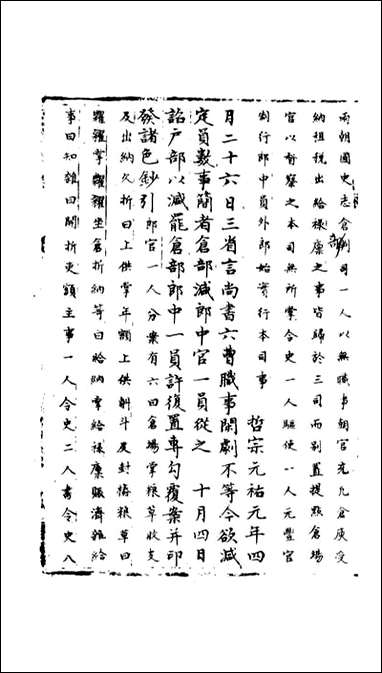 兩朝國史志倉部判司一人以無職事朝官充凡倉庾受
納租稅出給祿廩之事皆歸於三司而別置提點倉場
官以督察之本司無所掌令史一人驅使一人元豐官
制行郎中員外郎始實行本司事
哲宗元祐元年四
月二十六日三省言尚書六曹職事閑劇不等今欲減
定員數事簡者倉部減郎中官一員從之　十月四日
詔戶部以減罷倉部郎中一員許復置專勾覆案并印
發諸色鈔引郎官一人分案有六曰倉場掌粮草收支
及出納欠折曰上供掌年額上供斛斗及封樁粮草曰
糶糴掌糶糴坐倉折納等曰給納掌給祿廩賑濟雜給
事曰知雜曰開拆吏額主事一人令史二人書令史八